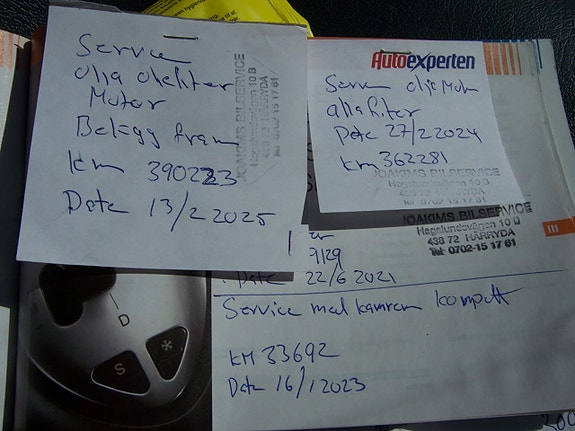 Service
olja olekter
Motor
Belägg fram
km 390223
Date 13/2 2025
JOAKIMS BILSERVICE
Hagslundsvägen 10 B
438 72 HÄRRYDA
Tel: 0702-15 17 61
Autoexperten
Servic olja Moto
alla filter
Date 27/2 2024
km 362281
JOAKIMS BILSERVICE
Hagslundsvägen 10 B
438 72 HÄRRYDA
Tel: 0702-15 17 61
JOAKIMS BILSERVICE
Hagslundsvägen 10 B
438 72 HÄRRYDA
Tel: 0702-15 17 61
9/29
Date 22/6 2021
Service med kamrem komplett
KM 33692
Date 16/1 2023
D
S
*